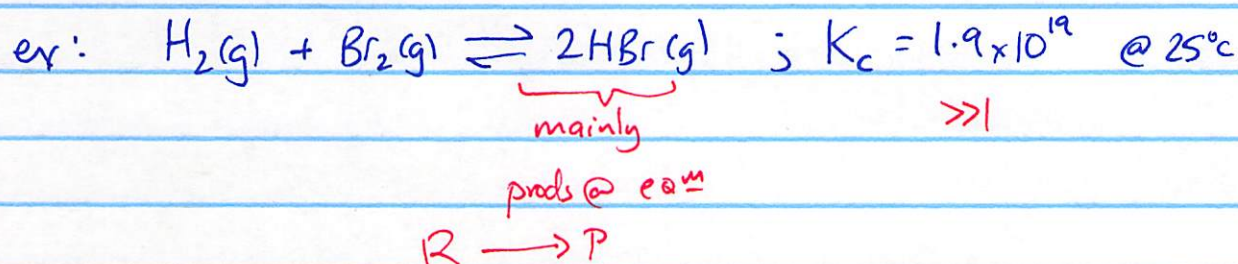 ex: H₂(g) + Br₂(g) ⇌ 2HBr(g) ; Kc = 1.9 x 10¹⁹ @ 25°C
mainly >>1
prods @ eqm
R → P